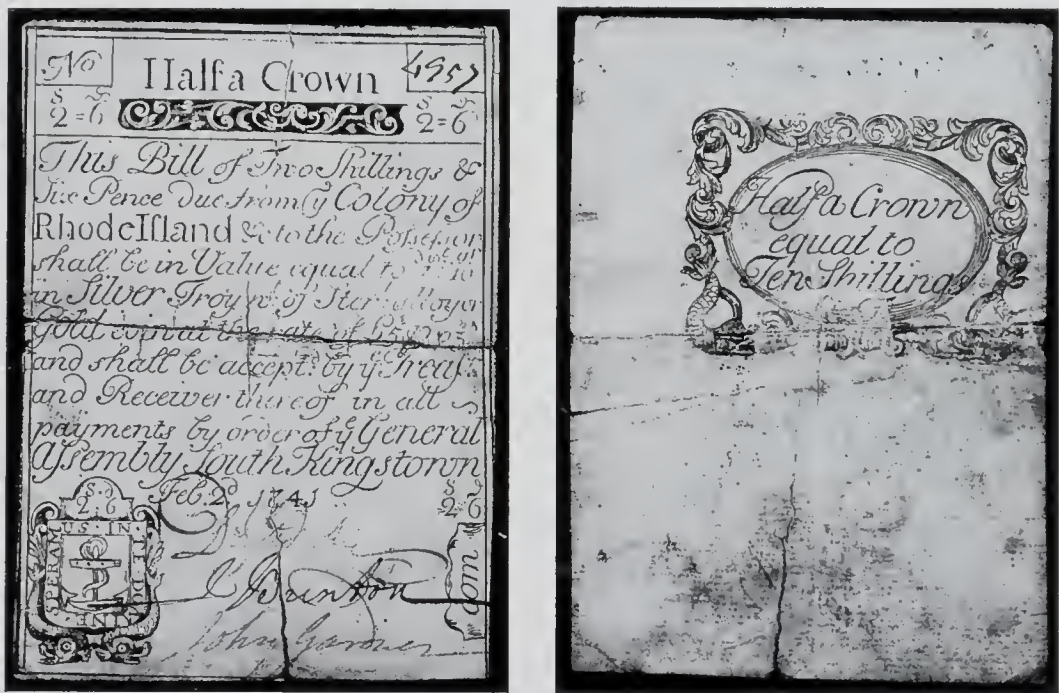 No Half a Crown 4957
s d
2=6
s d
2=6
This Bill of Two Shillings &
Six Pence due from ye Colony of
Rhode Island &c to the Possessor
shall be in Value equal to
in Silver Troy wt. of
Gold Coin at the rate of
and shall be accept. by ye Treas.
and Receiver thereof in all
payments by order of ye General
Assembly South Kingstown
Feb. 2d 1741
s d
2 6
s d
2 6
SPERAMUS IN DOMINE
com
John Gardner
Half a Crown
equal to
Ten Shillings